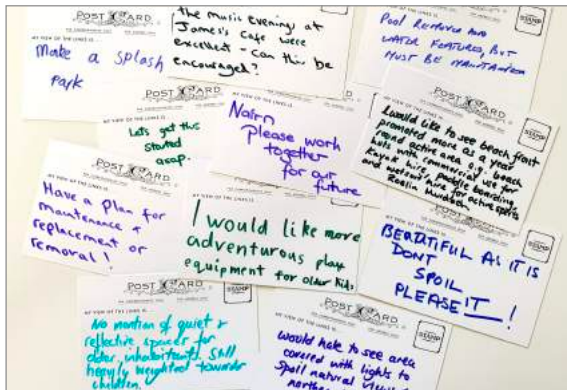 POST CARD
MY VIEW OF THE LINKS IS...
Make a splash
park
the music evenings at
James's cafe were
excellent - can this be
encouraged?
STAMP
Pool Removed and
WATER FEATURES, BUT
MUST BE MAINTAINED
STAMP
POST CARD
MY VIEW OF THE LINKS IS...
Lets get this
started
asap.
Nairn
Please work
together
for our
future
I would like to see beach front
promoted more as a year
round active area e.g. beach
huts with commercial use for
Kayak hire, paddle boarding
and wetsuit hire for active sports
POST CARD
MY VIEW OF THE LINKS IS...
Have a plan for
maintenance &
replacement or
removal!
MY VIEW OF THE LINKS IS...
I would like more
adventurous play
equipment for older kids
STAMP
BEAUTIFUL AS IT IS
DONT
SPOIL
PLEASE IT!
POST CARD
STAMP
MY VIEW OF THE LINKS IS...
No mention of quiet &
reflective spaces for
older inhabitants. Still
heavily weighted towards
children.
POST CARD
STAMP
MY VIEW OF THE LINKS IS...
would hate to see area
covered with lights to
Spoil natural